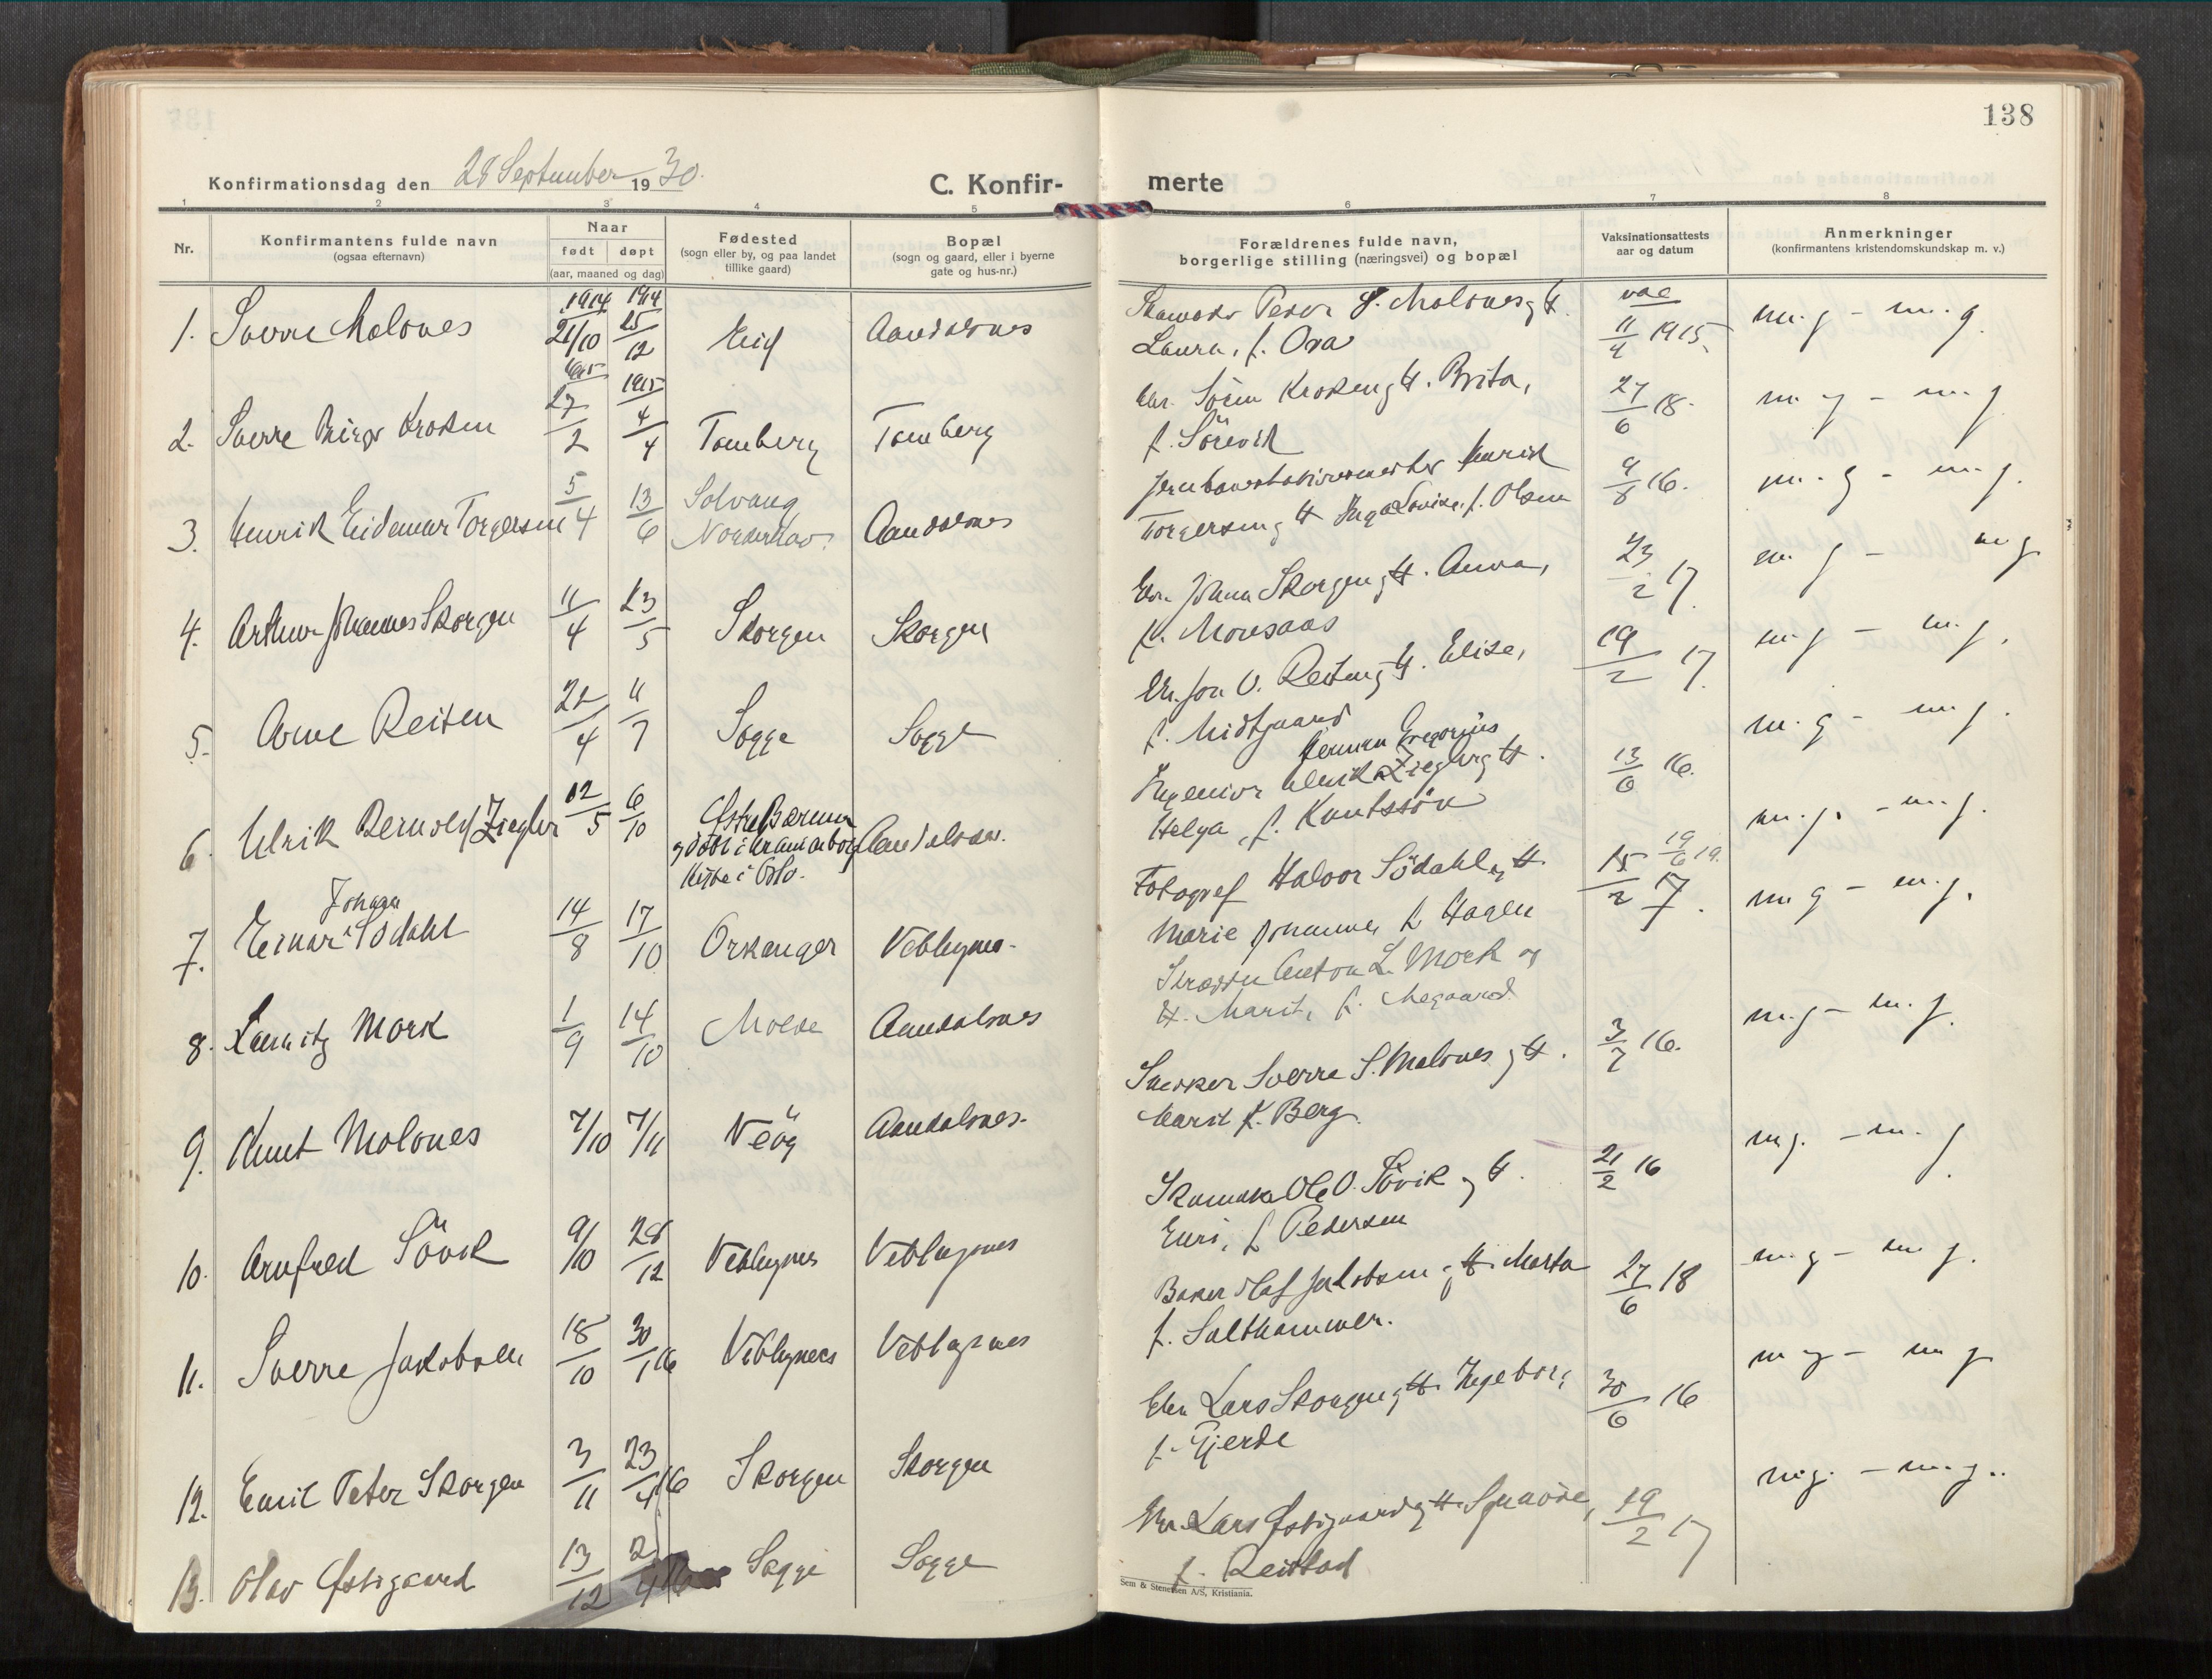 138
Konfirmationsdag den 28 September 1930.
C. Konfir-
merte
1 2 3 4 5 6 7 8
Nr.
Konfirmantens fulde navn
(ogsaa efternavn)
Naar
født døpt
(aar, maaned og dag)
Fødested
(sogn eller by, og paa landet
tillike gaard)
Bopæl
(sogn og gaard, eller i byerne
gate og hus-nr.)
Forældrenes fulde navn,
borgerlige stilling (næringsvei) og bopæl
Vaksinationsattests
aar og datum
Anmerkninger
(konfirmantens kristendomskundskap m. v.)
1. Sverre Molvnes 1914 21/10 1914 25/12 Eid Aandalsnes
Peder Molvnes og H.
Laura, f. Ora
vac 11/4 1915 m. g - m. g
2. Sverre Birger Kroken 1915 27/2 1915 4/4 Tomberg Tomberg
Ebr. Sören Kroken og H. Brita,
f. Sörevik
27/6 18. m g - m. g
3. Henrik Eidemar Torgersen 5/4 13/6 Solvang Aandalsnes
Henrik
Torgersen og H Inga Lovise, f. Olsen
9/8 16. m. g - m. g.
4. Arthur Johannes Skorgen 11/4 23/5 Skorgen Skorgen
Johan Skorgen og H. Anna,
f. Monsaas
23/2 17. m. g - m g
5. Arne Reiten 22/4 11/7 Sogge Sogge
Jon O. Reiten og H. Elise,
f. Midtgaard
19/2 17. m. g - m. g.
6. Ulrik Bernolf Ziegler 12/5 6/10 Østre Bærum
kirke i Oslo. Aandalsnes.
Herman Gregorius
Ingeniør Ulrik Ziegler og H.
Helga, f. Knutssön
13/6 16. m. g - m. g.
7. Einar Johann Södahl 14/8 17/10 Orkanger Veblungsnes.
Fotograf Halvor Södahl og H.
Marie Johanne, f. Hagen
15/2 17. 19/6 19. m. g. - m. g.
8. Lauritz Mork 1/9 14/10 Molde Aandalsnes
Skrædder Anton L. Mork og
H. Marit, f. Megaard.
m. g - m. g.
9. Knut Molvnes 7/10 7/11 Veöy Aandalsnes.
Snekker Sverre S. Molvnes og H.
Marit f. Berg.
3/7 16. m. g - m. g.
10. Arnfred Sövik 9/10 28/12 Veblugsnes Veblugsnes
Skomaker Ole O. Sövik og H.
Guri, f. Pedersen
21/2 16 m g. - m. g.
11. Sverre Jakobsen 18/10 30/1 16 Veblugsnes Veblugsnes
Baker Olaf Jakobsen og H. Marta
f. Salthammer.
27/6 18 m. g - m g.
12. Emil Peter Skorgen 3/11 23/4 16 Skorgen Skorgen
Lars Skorgen og H. Ingeborg
f. Gjerde
30/6 16 m g - m g
13. Olav Østigaard 13/12 2/4 16 Sogge Sogge
Lars Østigaard og H.
f. Reistad
19/2 17 m g. - m. g.
Sem & Stenersen A/S, Kristiania.